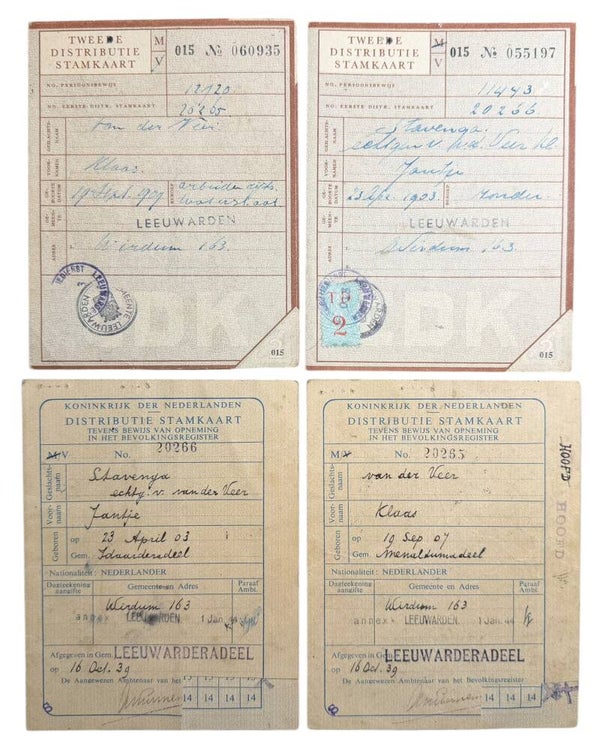 TWEEDE
DISTRIBUTIE
STAMKAART
M
V
015 № 060935
NO. PERSOONSBEWIJS
12120
NO. EERSTE DISTR. STAMKAART
20265
GESLACHTSNAAM
van der Veer
VOORNAMEN
Klaas
GEBOORTEDATUM
19 Sept. 1907
BEROEP
arbeider
waterstaat
GEMEENTE
LEEUWARDEN
ADRES
Wirdum 163.
GEMEENTE LEEUWARDEN
015
TWEEDE
DISTRIBUTIE
STAMKAART
M
V
015 № 055197
NO. PERSOONSBEWIJS
11443
NO. EERSTE DISTR. STAMKAART
20266
GESLACHTSNAAM
Stavenga
echtgen. v. Veer
VOORNAMEN
Jantje
GEBOORTEDATUM
23 Apr. 1903
BEROEP
zonder
GEMEENTE
LEEUWARDEN
ADRES
Wirdum 163.
TD
2
015
KONINKRIJK DER NEDERLANDEN
DISTRIBUTIE STAMKAART
TEVENS BEWIJS VAN OPNEMING
IN HET BEVOLKINGSREGISTER
M/V No. 20266
Geslachtsnaam
Stavenga
echtg. v. van der Veer
Voornaam
Jantje
Geboren
op 23 April 03
Gem. Idaarderadeel
Nationaliteit: NEDERLANDER
Dagteekening aangifte
Gemeente en Adres
Paraaf Ambt.
Wirdum 163
annex LEEUWARDEN. 1 Jan. 44
Afgegeven in Gem. LEEUWARDERADEEL
op 16 Oct. 39
De Aangewezen Ambtenaar van het bevolkingsregister
14 14 14 14
8
KONINKRIJK DER NEDERLANDEN
DISTRIBUTIE STAMKAART
TEVENS BEWIJS VAN OPNEMING
IN HET BEVOLKINGSREGISTER
M/V No. 20265
Geslachtsnaam
van der Veer
Voornaam
Klaas
Geboren
op 19 Sep 07
Gem. Menaldumadeel
Nationaliteit: NEDERLANDER
Dagteekening aangifte
Gemeente en Adres
Paraaf Ambt.
Wirdum 163
annex LEEUWARDEN. 1 Jan. 44
Afgegeven in Gem. LEEUWARDERADEEL
op 16 Oct. 39
De Aangewezen Ambtenaar van het bevolkingsregister
14 14 14 14
8
HOOFD HOOFD